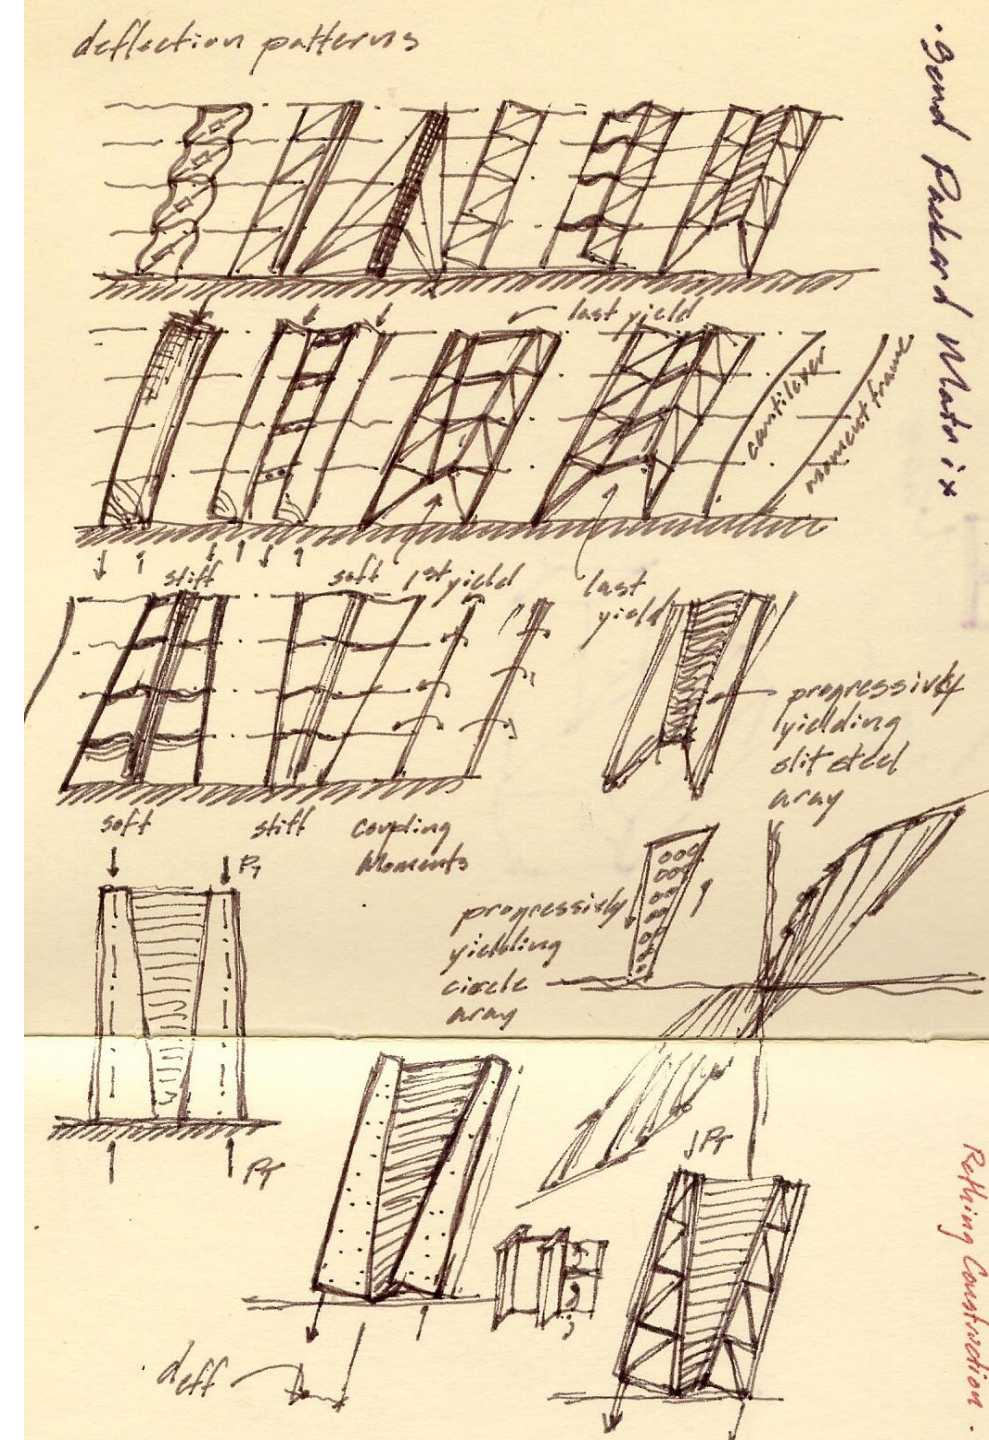 deflection patterns
· Send Packard Matrix
last yield
cantilever
moment frame
stiff
soft
1st yield
last
yield
progressively
yielding
slit steel
array
soft
stiff
coupling
Moments
PT
progressively
yielding
circle
array
PT
PT
deff
Rethinking Construction ·